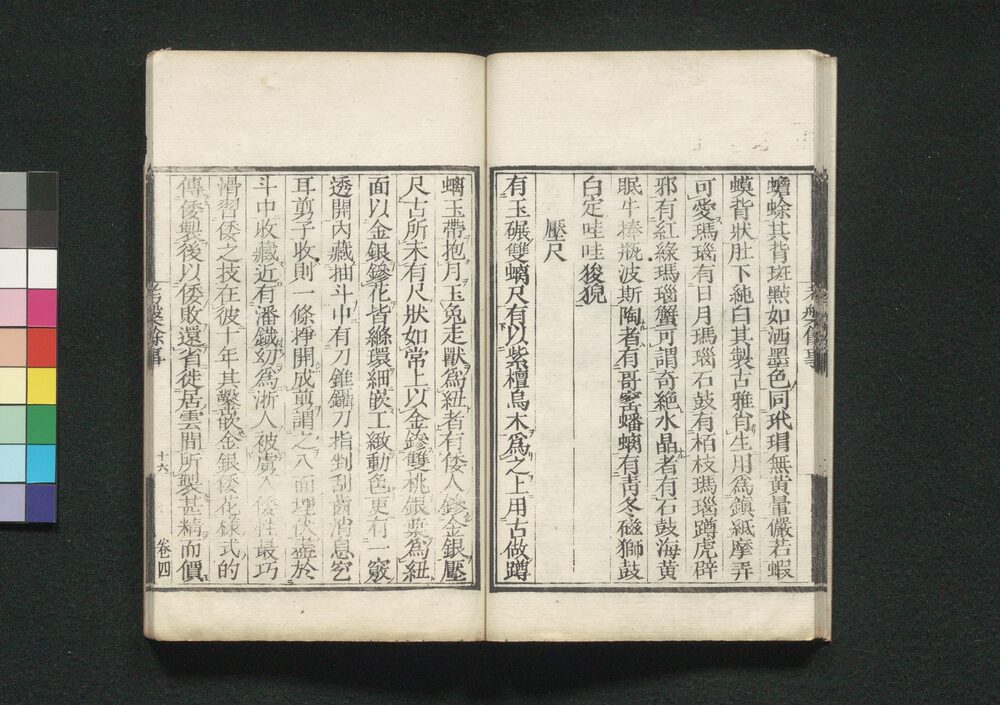 蟾蜍其背斑點如洒墨色同玳瑁無黃暈儼若蝦
蟆背狀肚下純白其製古雅肖生用爲鎮紙摩弄
可愛瑪瑙有日月瑪瑙石鼓有柏枝瑪瑙蹲虎辟
邪有紅緣瑪瑙蟹可謂奇絶水晶者有石鼓海黄
眠牛捧瓶波斯陶者有哥窰蟠螭有靑冬磁獅鼓
白定哇哇狻猊
壓尺
有玉碾雙螭尺有以紫檀烏木爲之上用古做蹲
螭玉帶抱月玉兔走獸爲紐者有倭人鏒金銀壓
尺古所未有尺狀如常上以金鏒雙桃銀葉爲紐
面以金銀鏒花皆絛環細嵌工緻動色更有一竅
透開內藏抽斗中有刀錐鑷刀指剉刮齒消息穵
耳剪子收則一條掙開成剪謂之八面埋伏盡於
斗中收藏近有潘鐵幼爲浙人被虜入倭性最巧
滑習倭之技在彼十年其鑿嵌金銀倭花樣式的
傳倭製後以倭敗還省徙居雲間所製甚精而價
考槃餘事
十六
卷四